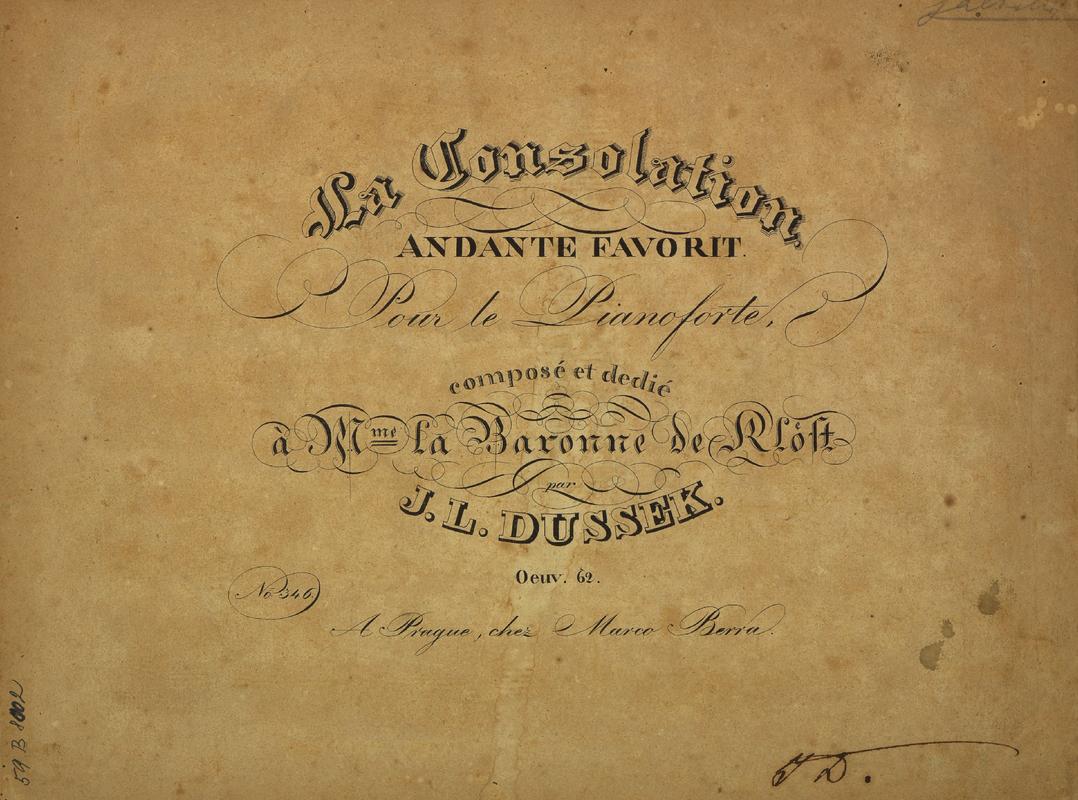 La Consolation,
ANDANTE FAVORIT.
Pour le Pianoforte,
composé et dedié
à Mme la Baronne de Klöst
par
J. L. DUSSEK.
Oeuv. 62.
No 346.
A Prague, chez Marco Berra.
59 B 8002
J D.